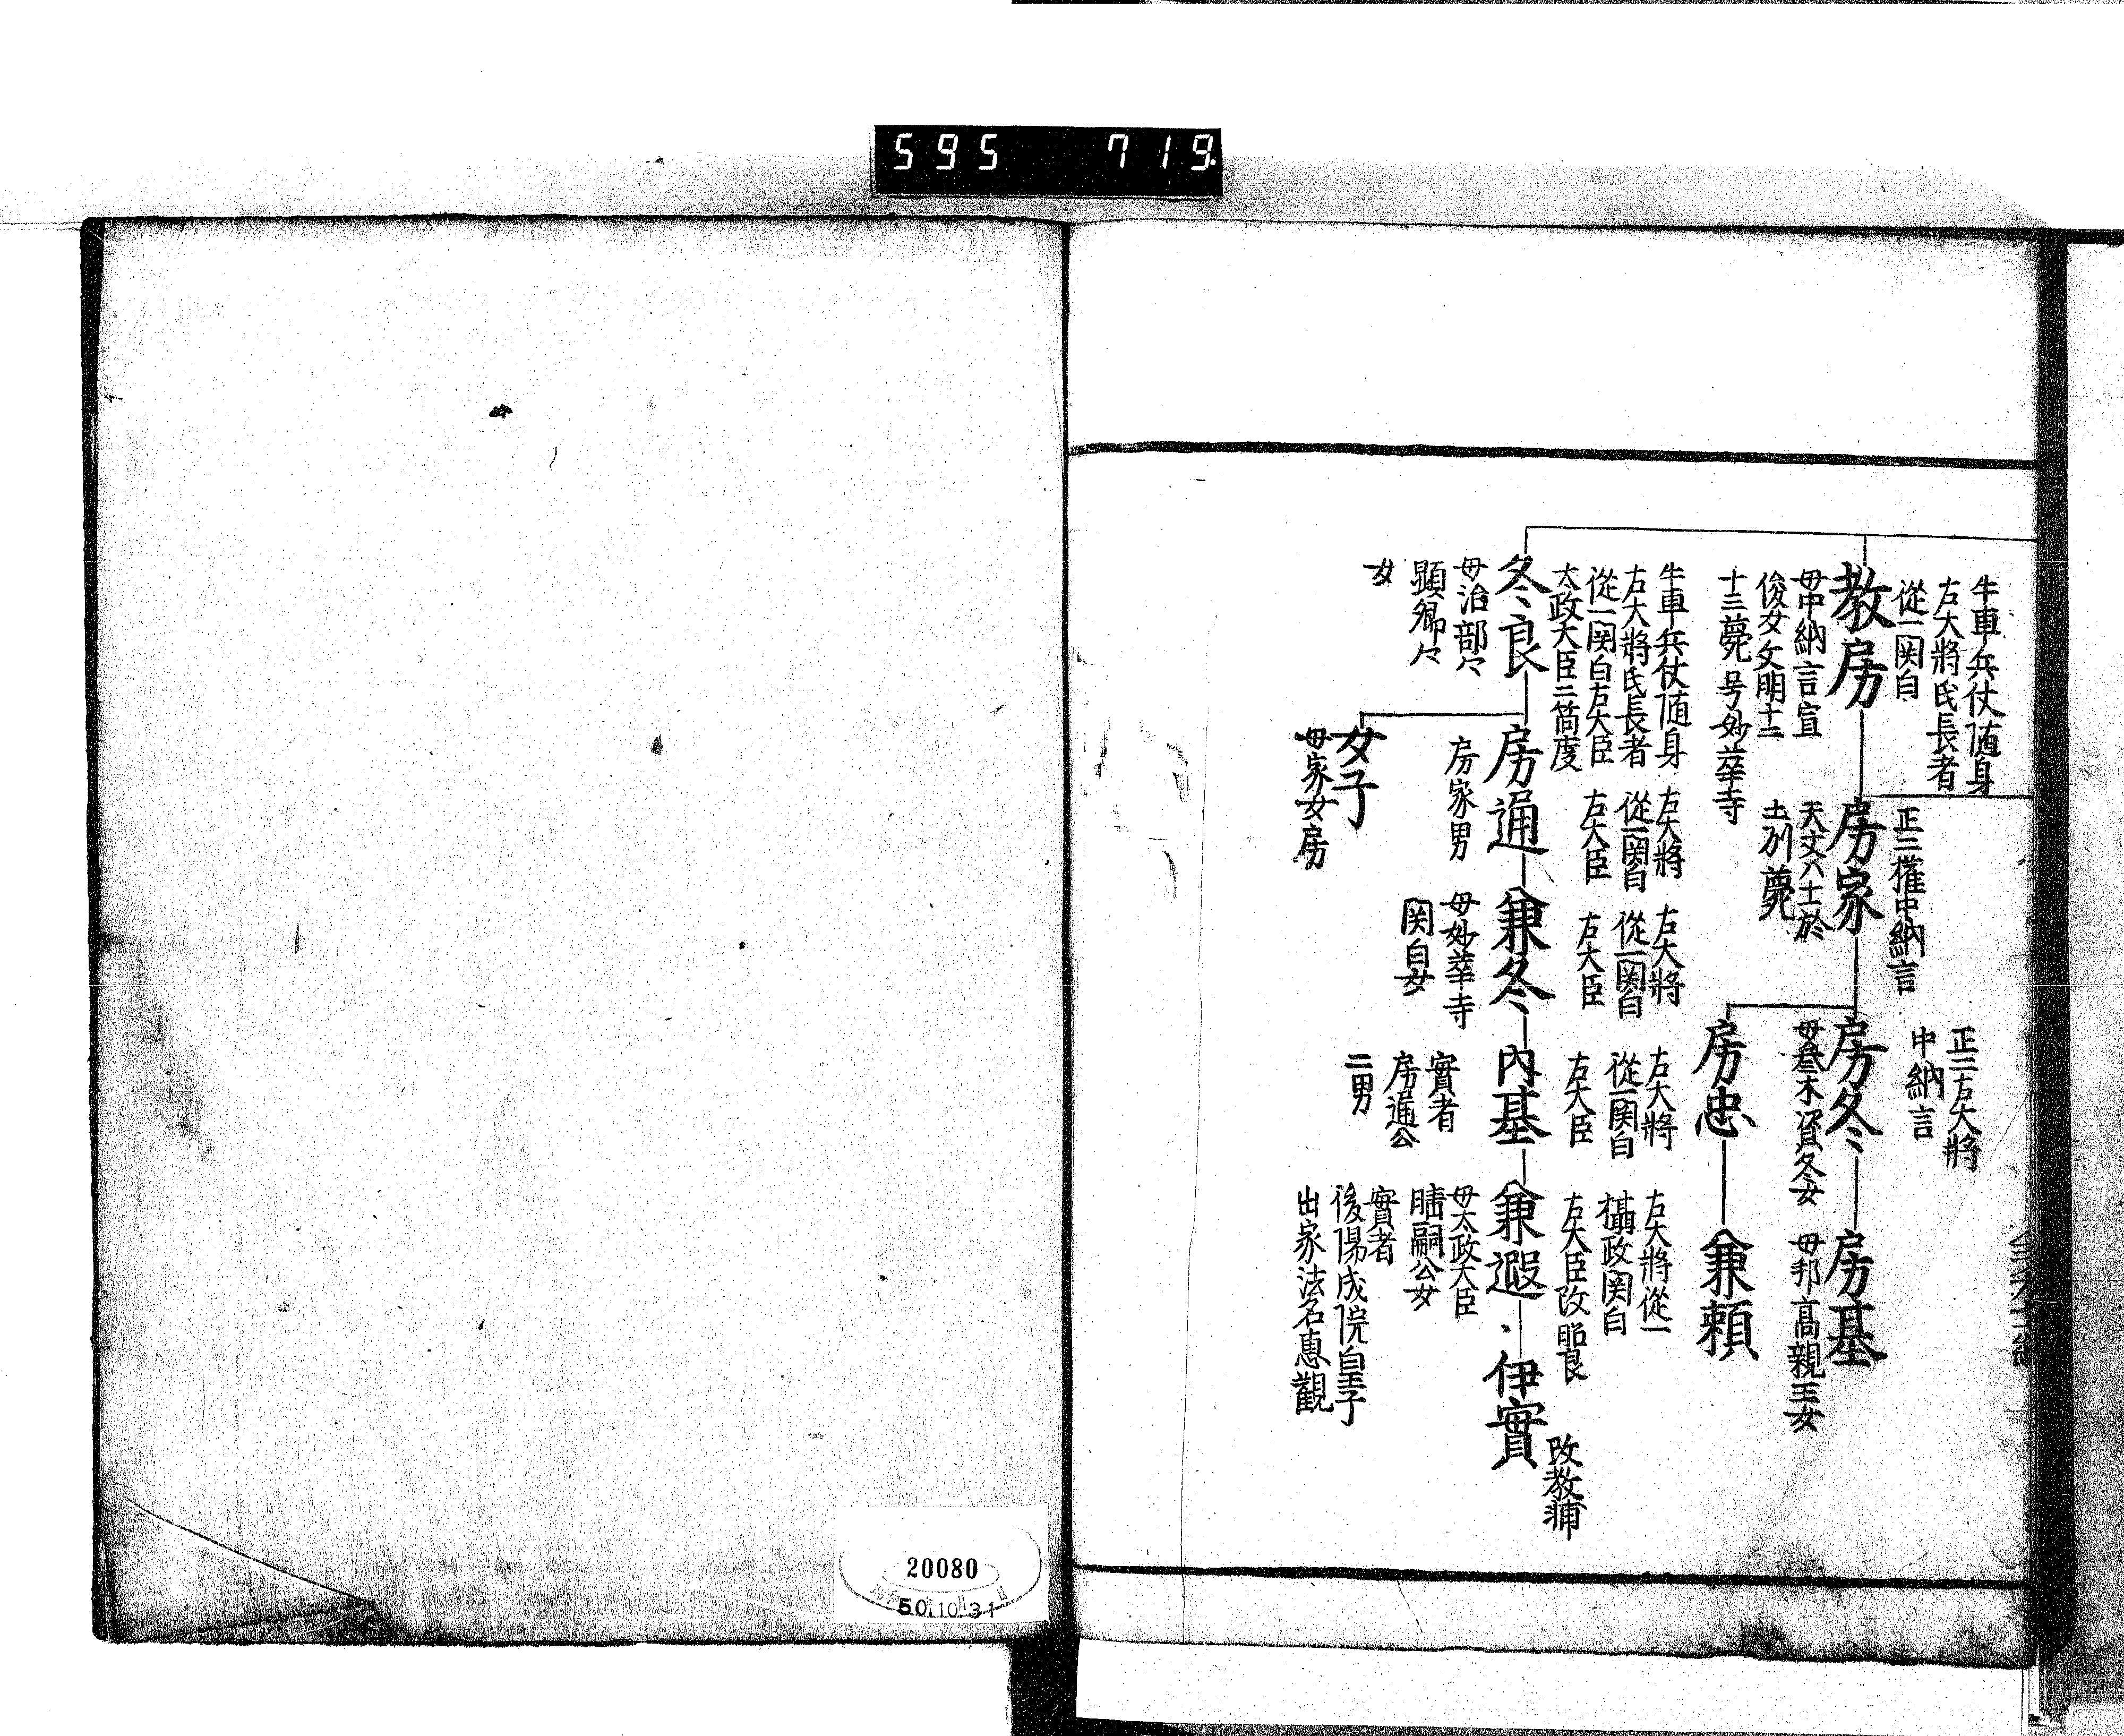 595 719
牛車兵仗随身
左大將氏長者
從一関白
教房
母中納言宣
俊女文明十二
十三薨号妙華寺
正二権中納言
房家
天文八十一於
土列薨
正二右大將
中納言
房冬
母参木資冬女
房基
母邦高親王女
房忠
兼頼
牛車兵仗随身
右大將氏長者
從一関白左大臣
太政大臣二箇度
冬良
母治部々
顕郷々
女
左大將
從一関白
左大臣
房通
房家男
女子
母家女房
右大將
從一関白
右大臣
兼冬
母妙華寺
関白女
左大將
從一関白
右大臣
内基
實者
房通公
二男
右大將從一
攝政関白
左大臣改昭良
兼遐
母太政大臣
晴嗣公女
實者
後陽成院皇子
出家法名惠觀
伊實
改教輔
20080
50.10.31